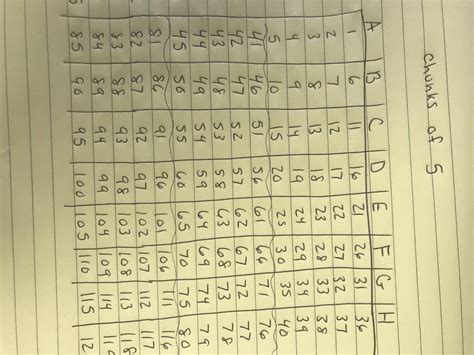 chunks of 5
A B C D E F G H
1 6 11 16 21 26 31 36
2 7 12 17 22 27 32 37
3 8 13 18 23 28 33 38
4 9 14 19 24 29 34 39
5 10 15 20 25 30 35 40
41 46 51 56 61 66 71 76
42 47 52 57 62 67 72 77
43 48 53 58 63 68 73 78
44 49 54 59 64 69 74 79
45 50 55 60 65 70 75 80
81 86 91 96 101 106 111 116
82 87 92 97 102 107 112 117
83 88 93 98 103 108 113
84 89 94 99 104 109 114
85 90 95 100 105 110 115 12